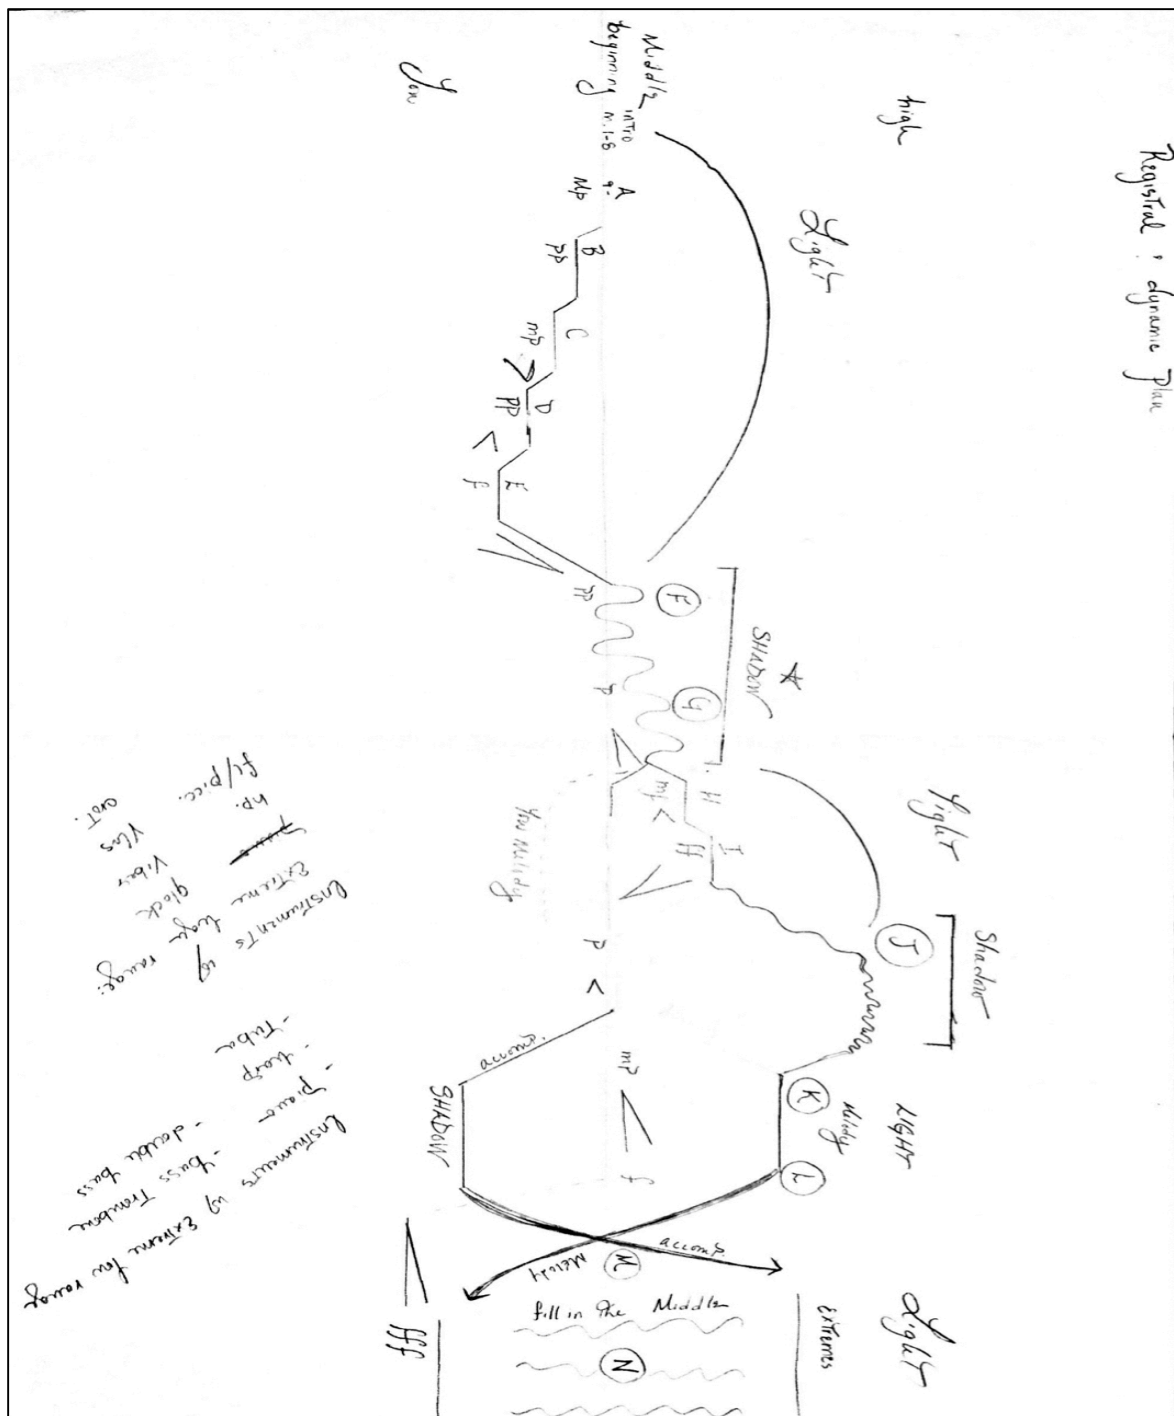 Registral & dynamic Plan
high
Middle
beginning
low
intro
m. 1-8
Light
A
Mp
B
pp
C
mp
D
pp
E
f
F
pp
SHADOW
G
p
H
mf
I
ff
low Melody
Light
J
Shadow
p
accomp.
SHADOW
mp
f
K
Melody
LIGHT
L
accomp.
Melody
M
fill in the Middle
N
Extremes
Light
fff
Instruments w/
Extreme high range:
fl/picc.
hp.
Vlns
Vibes
glock
Instruments w/ Extreme low range
- double bass
- bass Trombone
- piano
- harp
- Tuba